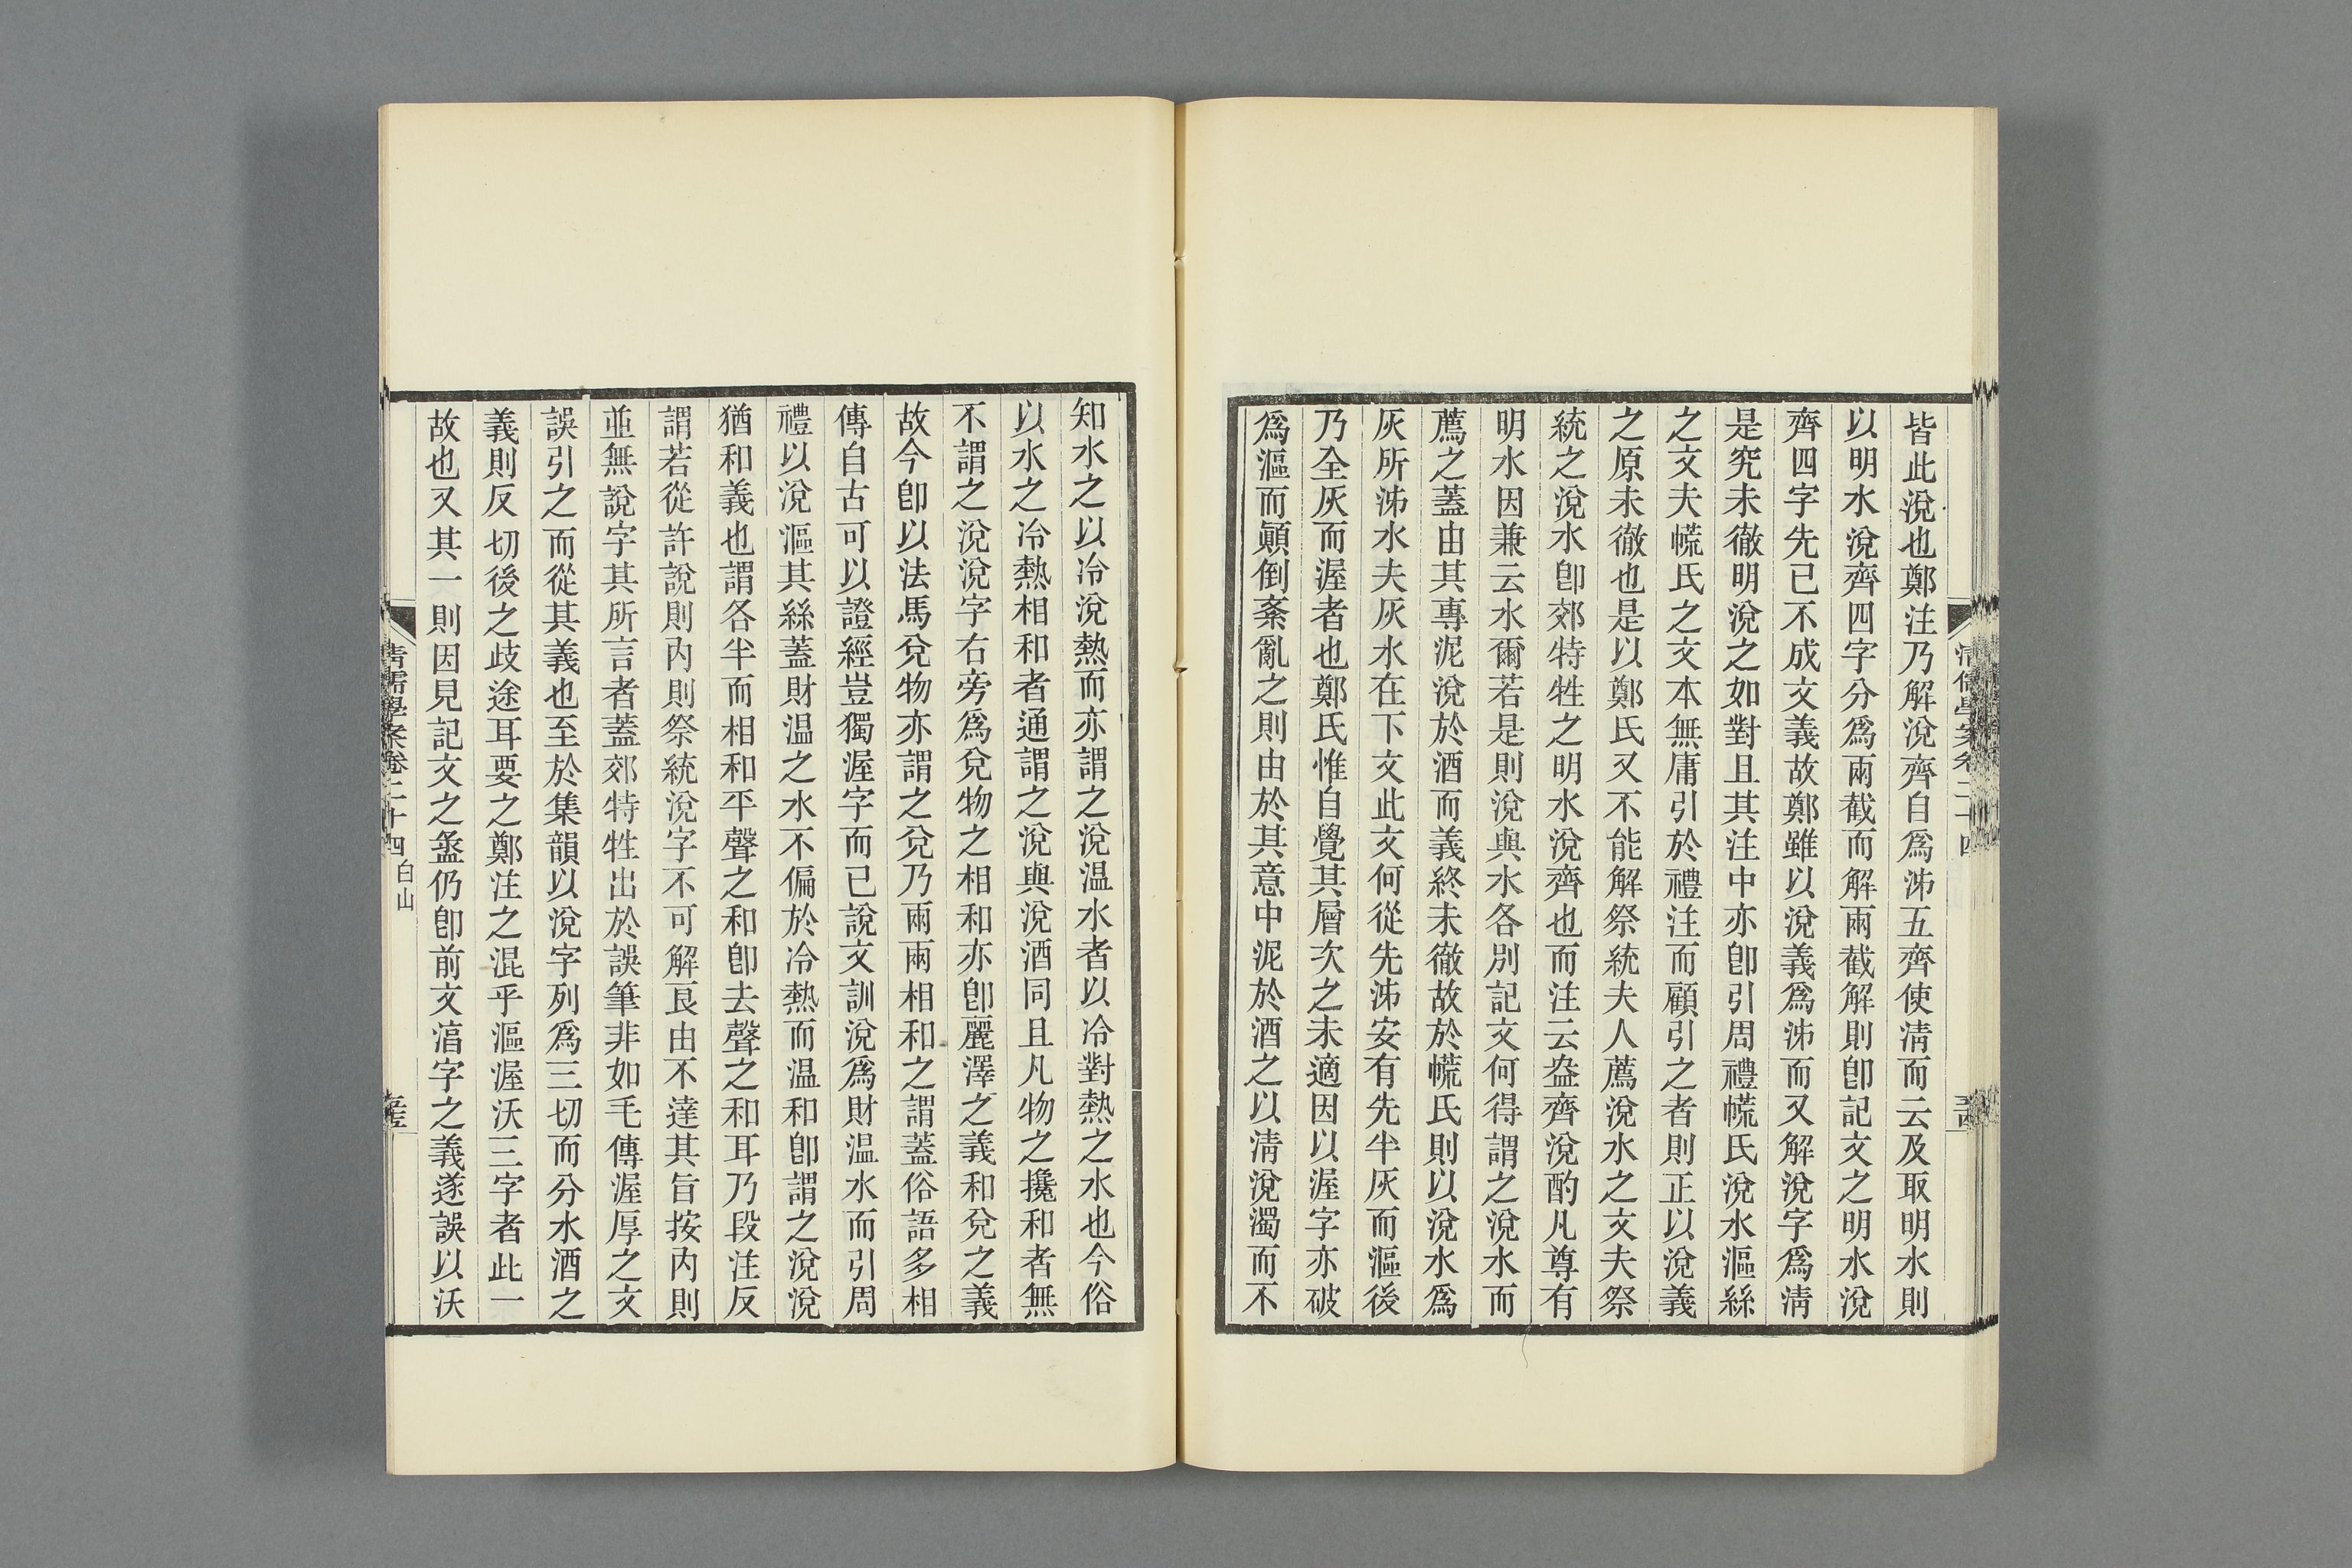 皆此涚也鄭注乃解涚齊自爲泲五齊使清而云及取明水則
以明水涚齊四字分爲兩截而解兩截解則卽記文之明水涚
齊四字先已不成文義故鄭雖以涚義爲泲而又解涚字爲清
是究未徹明涚之如對且其注中亦卽引周禮㡛氏涚水漚絲
之文夫㡛氏之文本無庸引於禮注而顧引之者則正以涚義
之原未徹也是以鄭氏又不能解祭統夫人薦涚水之文夫祭
統之涚水卽郊特牲之明水涚齊也而注云盎齊涚酌凡尊有
明水因兼云水爾若是則涚與水各別記文何得謂之涚水而
薦之蓋由其專泥涚於酒而義終未徹故於㡛氏則以涚水爲
灰所泲水夫灰水在下文此文何從先泲安有先半灰而漚後
乃全灰而渥者也鄭氏惟自覺其層次之未適因以渥字亦破
爲漚而顚倒紊亂之則由於其意中泥於酒之以清涚濁而不
清儒學案卷二十四
知水之以冷涚熱而亦謂之涚温水者以冷對熱之水也今俗
以水之冷熱相和者通謂之涚與涚酒同且凡物之攙和者無
不謂之涚涚字右旁爲兌物之相和亦卽麗澤之義和兌之義
故今卽以法馬兌物亦謂之兌乃兩兩相和之謂蓋俗語多相
傳自古可以證經豈獨渥字而已說文訓涚爲財温水而引周
禮以涚漚其絲蓋財温之水不偏於冷熱而温和卽謂之涚涚
猶和義也謂各半而相和平聲之和卽去聲之和耳乃段注反
謂若從許說則內則祭統涚字不可解良由不達其旨按內則
並無說字其所言者蓋郊特牲出於誤筆非如毛傳渥厚之文
誤引之而從其義也至於集韻以涚字列爲三切而分水酒之
義則反切後之歧途耳要之鄭注之混乎漚渥沃三字者此一
故也又其一則因見記文之盝仍卽前文湆字之義遂誤以沃
清儒學案卷二十四 白山